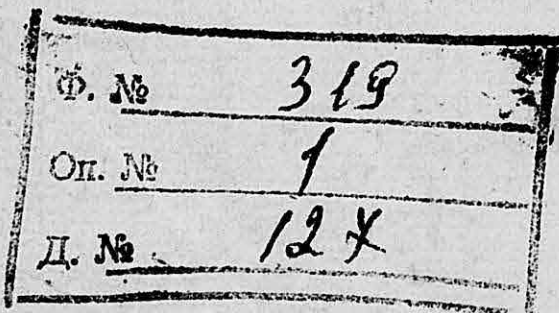 Ф. № 319
Оп. № 1
Д. №